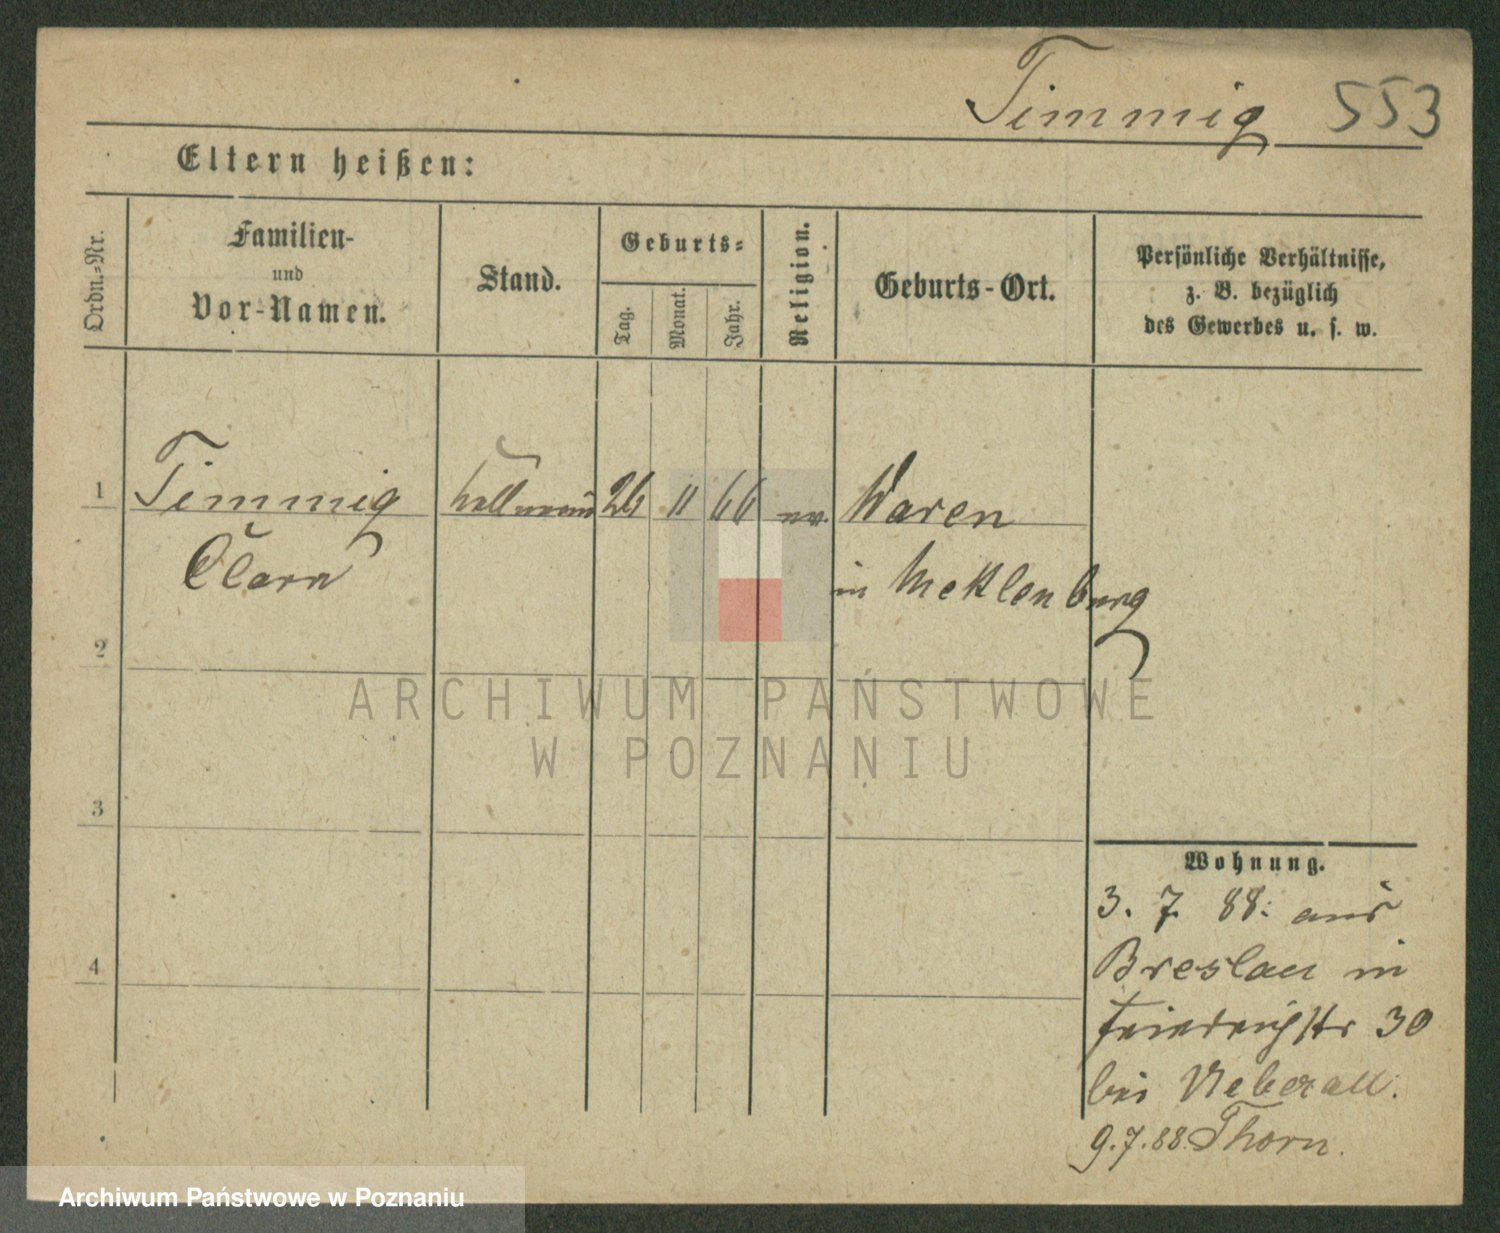 Timmig 553
Eltern heißen:
Ordn.-Nr.
Familien-
und
Vor-Namen.
Stand.
Geburts-
Tag.
Monat.
Jahr.
Religion.
Geburts-Ort.
Persönliche Verhältnisse,
z. B. bezüglich
des Gewerbes u. s. w.
1 Timmig Kellnerin 26 11 66 ev. Waren
Clara in Meklenburg
2
3
4
Wohnung.
3. 7. 88: aus
Breslau in
Friedrichstr 30
bei Ueberall.
9.7.88. Thorn.
ARCHIWUM PAŃSTWOWE
W POZNANIU
Archiwum Państwowe w Poznaniu